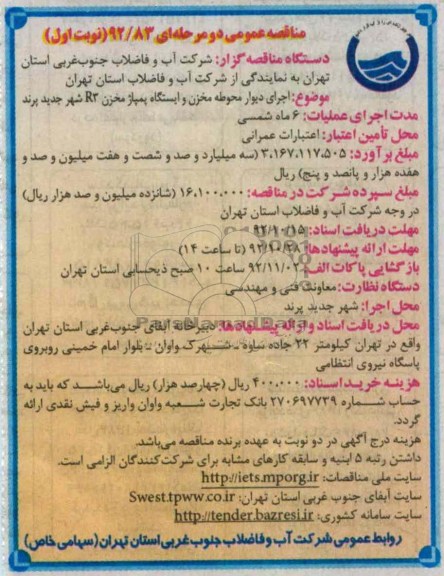 مناقصه عمومی دو مرحله‌ای ۹۲/۸۳ (نوبت اول)
دستگاه مناقصه گزار: شرکت آب و فاضلاب جنوب‌غربی استان
تهران به نمایندگی از شرکت آب و فاضلاب استان تهران
موضوع: اجرای دیوار محوطه مخزن و ایستگاه پمپاژ مخزن R۳ شهر جدید پرند
مدت اجرای عملیات: ۶ ماه شمسی
محل تأمین اعتبار: اعتبارات عمرانی
مبلغ برآورد: ۳،۱۶۷،۱۱۷،۵۰۵ (سه میلیارد و صد و شصت و هفت میلیون و صد و
هفده هزار و پانصد و پنج) ریال
مبلغ سپرده شرکت در مناقصه: ۱۶،۱۰۰،۰۰۰ (شانزده میلیون و صد هزار ریال)
در وجه شرکت آب و فاضلاب استان تهران
مهلت دریافت اسناد: ۹۲/۱۰/۱۵
مهلت ارائه پیشنهادها: ۹۲/۱۰/۲۸ (تا ساعت ۱۴)
بازگشایی پاکات الف: ۹۲/۱۱/۰۲ ساعت ۱۰ صبح ذیحسابی استان تهران
دستگاه نظارت: معاونت فنی و مهندسی
محل اجرا: شهر جدید پرند
محل دریافت اسناد و ارائه پیشنهادها: دبیرخانه آبفای جنوب‌غربی استان تهران
واقع در تهران کیلومتر ۲۲ جاده ساوه - شهرک واوان - بلوار امام خمینی روبروی
پاسگاه نیروی انتظامی
هزینه خرید اسناد: ۴۰۰،۰۰۰ ریال (چهارصد هزار) ریال می‌باشد که باید به
حساب شماره ۲۷۰۶۹۷۷۳۹ بانک تجارت شعبه واوان واریز و فیش نقدی ارائه
گردد.
هزینه درج آگهی در دو نوبت به عهده برنده مناقصه می‌باشد.
داشتن رتبه ۵ ابنیه و سابقه کارهای مشابه برای شرکت‌کنندگان الزامی است.
سایت ملی مناقصات: http://iets.mporg.ir
سایت آبفای جنوب غربی استان تهران: Swest.tpww.co.ir
سایت سامانه کشوری: http://tender.bazresi.ir
روابط عمومی شرکت آب و فاضلاب جنوب غربی استان تهران (سهامی خاص)